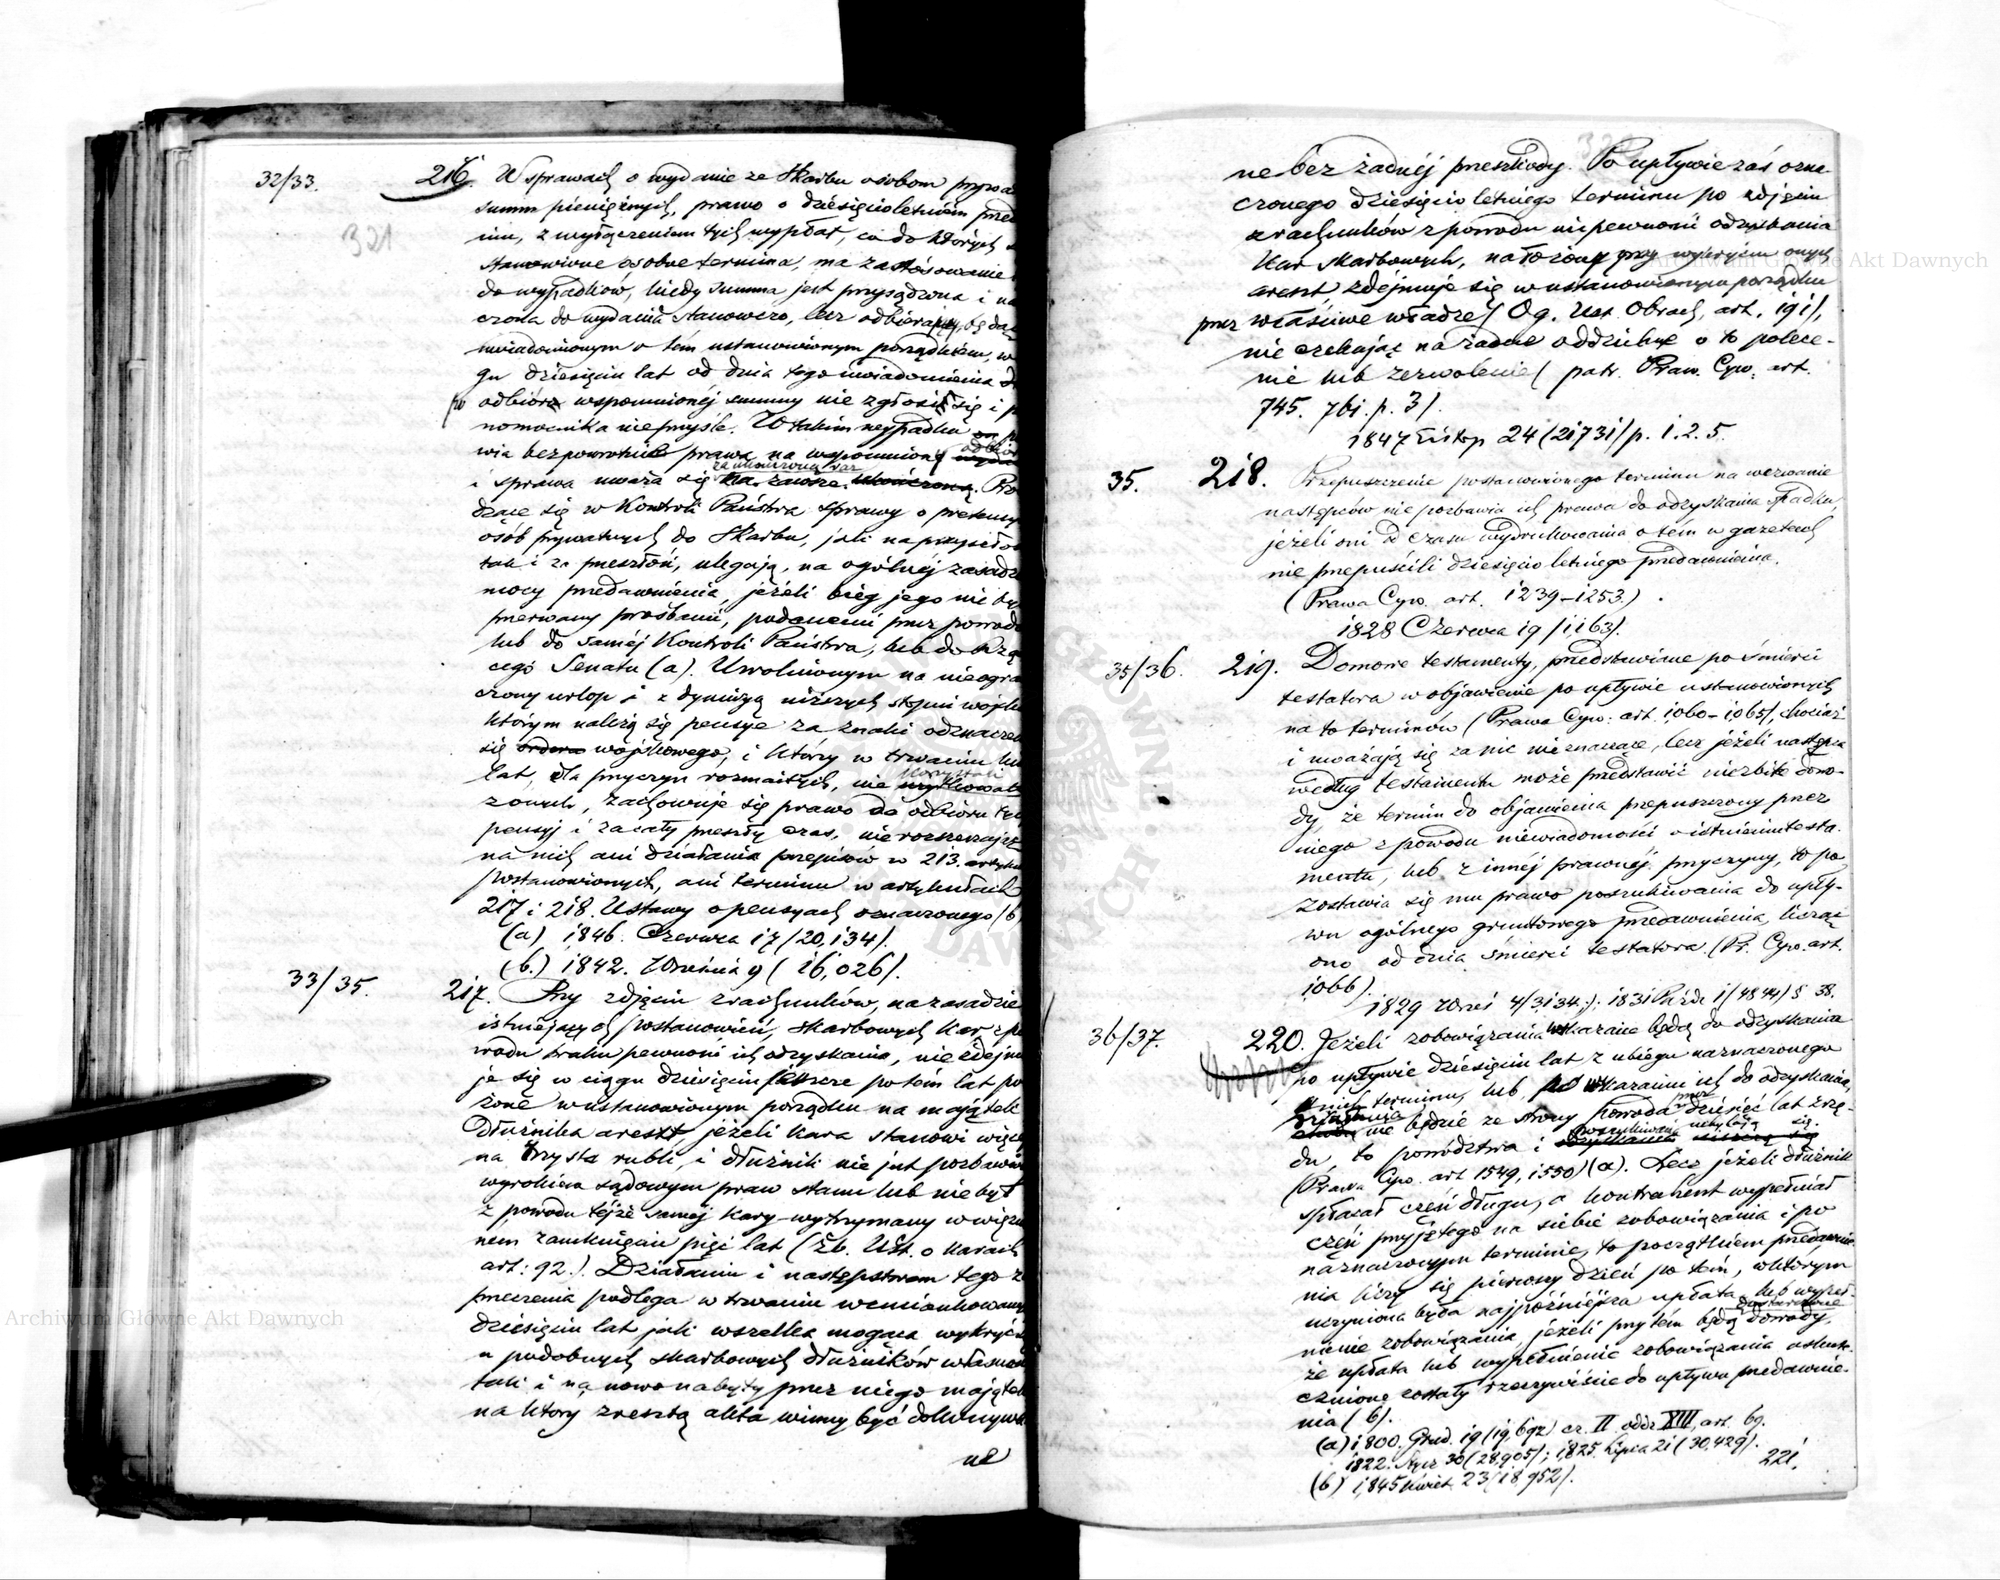 32/33.
321
216. W sprawach o wydanie ze Skarbu osobom prywa
summ pieniężnych, prawo o dziesięcioletniém przed
niu, z wyłączeniem tych wypłat, co do których
stanowione osobne termina, ma zastósowanie
do wypadków, kiedy summa jest przysądzona i na
czona do wydania stanowczo, lecz odbierający, będąc
uwiadomionym o tém ustanowionym porządkiem, w
gu dziesięciu lat od dnia tego uwiadomienia
po odbiór wspomnionéj summy nie zgłosi się i p
nomocnika nie przyśle. W takim wypadku
wia bezpowrotnie prawa na wspomnioną
i sprawa uważa się za ukończoną raz na zawsze ukończoną. Pro
dzące się w Kontroli Państwa sprawy o pretensye
osób prywatnych do Skarbu, jak na przyszłość
tak i za przeszłość, ulegają, na ogólnéj zasadzie
mocy przedawnienia, jeżeli bieg jego nie był
przerwany prośbami, podanemi przez powoda
lub do saméj Kontroli Państwa, lub do Rzą
cego Senatu (a). Uwolnionym na nieogra
czony urlop i z dymisyą niższych stopni wójsk
którym należą się pensye za znaki odznacze
się ordera wojskowego, i którzy w trwaniu
lat, dla przyczyn rozmaitych, nie korzystali
z onych, zachowuje się prawo do odbioru tych
pensyj i za cały przeszły czas, nierozszerzając
na nich ani działania przepisów w 213. artykule
postanowionych, ani terminu w artykułach
217 i 218. Ustawy o pensyach oznaczonego (b)
(a) 1846. Czerwca 17 (20,134).
(b.) 1842. Września 9 (16,026).
33/35.
217. Przy zdjęciu z rachunków, na zasadzie
istniejących postanowień, skarbowych kar, z po
wodu braku pewności ich odzyskania, nie zdejmu
je się w ciągu dziesięciu jeszcze po tém lat po
żone w ustanowionym porządku na majątek
dłużnika areszt, jeżeli kara stanowi więcéj
na trzysta rubli, i dłużnik nie jest pozbawiony
wyrokiem sądowym praw stanu lub nie był
z powodu téjże saméj kary wytrzymany w więzie
nem zamknięciu pięć lat (Zb. Ust. o Karach
art: 92.). Działaniu i następstwom tego za
przeczenia podlega w trwaniu wzmiankowanych
dziesięciu lat jak wszelka mogąca wykryć się
u podobnych skarbowych dłużników własność
tak i na nowo nabyty przez niego majątek
na który zresztą akta winny być dokonywa
ne
ne bez żadnéj przeszkody. Po upływie zaś ozna-
czonego dziesięcioletniego terminu po zdjęciu
z rachunków z powodu niepewności odzyskania
kar skarbowych, nałożony przy wykryciu onych
areszt, zdejmuje się w ustanowionym porządku
przez właściwe władze (Og. Ust. Obrach, art. 191),
nie czekając na żadne oddzielne o to polece-
nie lub zezwolenie (patr. Praw. Cyw. art.
745. 761. p. 3).
1847 Listop 24 (21731) p. 1. 2. 5.
35.
218. Przepuszczenie postanowionego terminu na wezwanie
następców nie pozbawia ich prawa do odzyskania spadku,
jeżeli oni od czasu wydrukowania o tém w gazetach
nie przepuścili dziesięcioletniego przedawnienia.
(Prawa Cyw. art. 1239–1253.).
1828 Czerwca 19 (1,163).
35/36.
219. Domowe testamenty, przedstawiane po śmierci
testatora w objawienie po upływie ustanowionych
na to terminów (Prawa Cyw: art. 1060–1065), chociaż
i uważają się za nic nieznaczące, lecz jeżeli następca
według testamentu może przedstawić niezbite dowo-
dy że termin do objawienia przepuszczony przez
niego z powodu niewiadomości o istnieniu testa-
mentu, lub z innéj prawnéj przyczyny, to po-
zostawia się mu prawo poszukiwania do upły-
wu ogólnego gruntowego przedawnienia, licząc
ono od dnia śmierci testatora. (Pr. Cyw. art.
1066).
1829 Wrześ 4 (3134.); 1831 Paźdz 1 (4844) § 38.
36/37.
220. Jeżeli zobowiązania wskazane będą do odzyskania
po upływie dziesięciu lat z ubiegu naznaczonego
w nich terminu, lub po wskazaniu ich do odzyskania,
nie będzie ze strony powoda przez dziesięć lat zrzą-
du, to powództwa i poszukiwania
(Prawa Cyw. art 1549, 1550) (a). Lecz jeżeli dłużnik
spłacał część długu, a kontrahent wypełniał
część przyjętego na siebie zobowiązania i po
naznaczonym terminie, to początkiem przedawnie-
nia liczy się pierwszy dzień po tém, w którym
uczyniona była najpóźniejsza upłata, lub wypeł-
nienie zobowiązania, jeżeli przytém będą dostawione dowody,
że upłata lub wypełnienie zobowiązania uskute-
cznione zostały rzeczywiście do upływu przedawnie-
nia (b).
(a) 1800. Grud. 19 (19,692) cz. II oddz XIII, art. 69.
1822. 30 (28,905); 1825. Lipca 21 (30,429).
(b) 1845 Kwiet. 23 (18,952).
221.
Archiwum Główne Akt Dawnych
Archiwum Główne Akt Dawnych